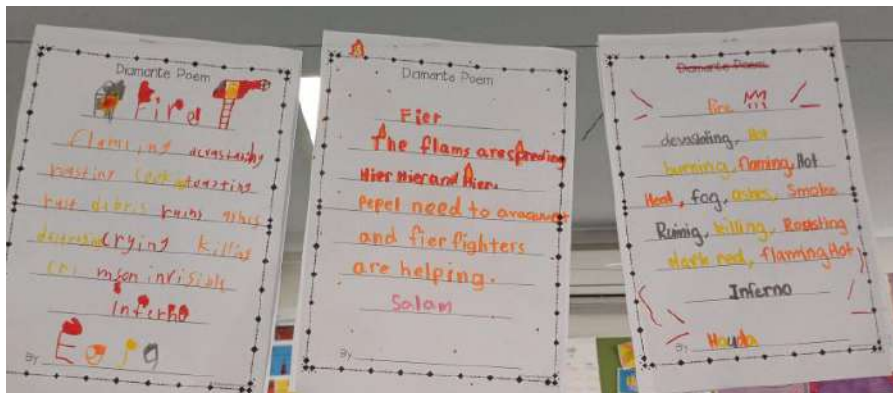 Diamante Poem
Fire
Flaming devastating
rust debris ruins ashes
crying killing
crimson invisible
Inferno
By
Diamante Poem
Fier
The flams are spreding
Hier Hier and Hier.
Pepel need to avacuwet
and fierfighters
are helping.
Salam
By
Diamante Poem
Fire
devastating, Hot
burning, flaming, Hot
Heat, fog, ashes, Smoke
Ruinig, killing, Roasting
dark red, flamming Hot
Inferno
By Houda